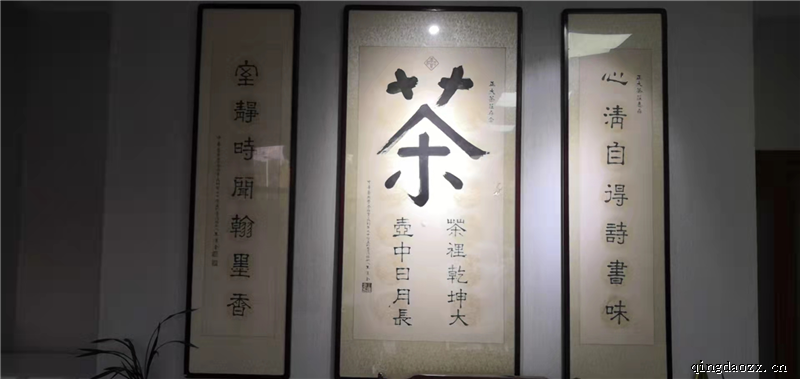 心清自得詩書味
茶
茶裡乾坤大
壺中日月長
室靜時聞翰墨香
qingdaozz.cn